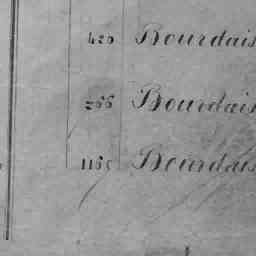 420 Bourdais
266 Bourdais
1165 Bourdais